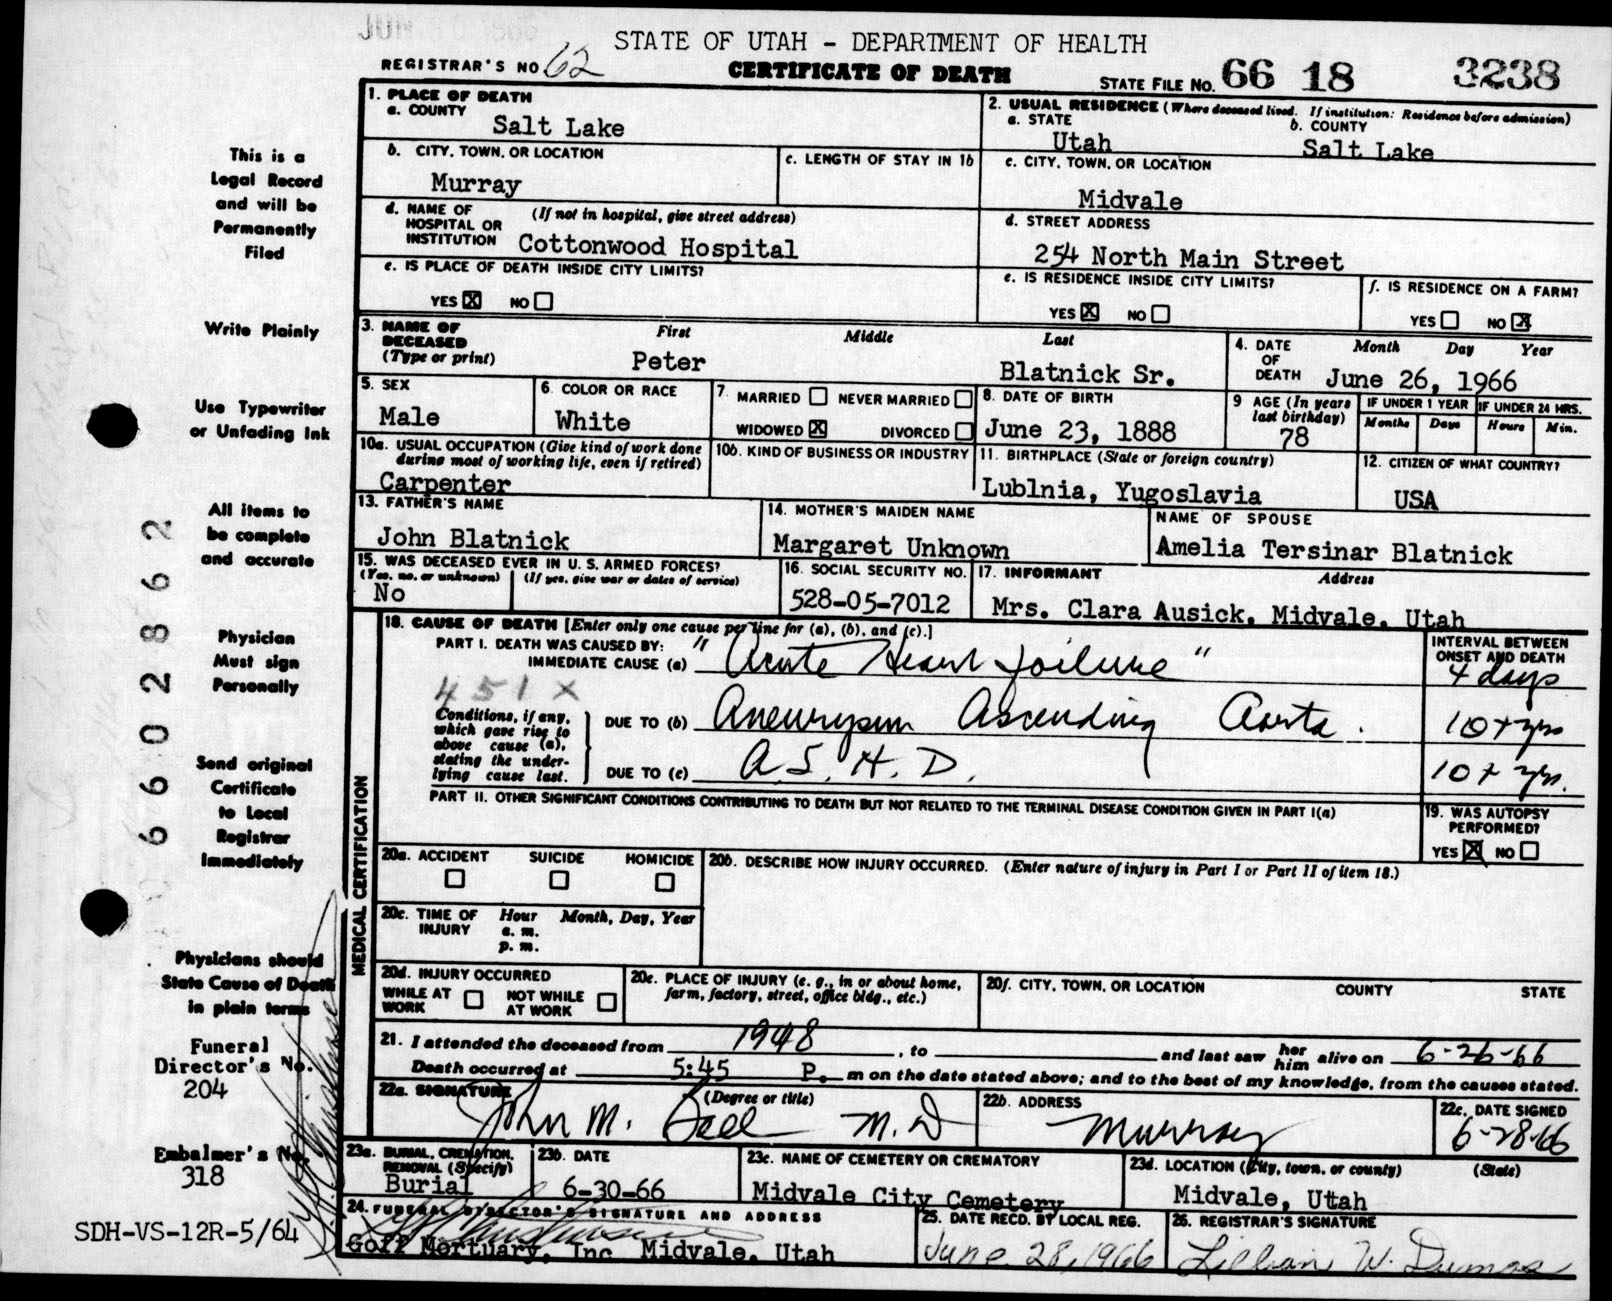 STATE OF UTAH - DEPARTMENT OF HEALTH
REGISTRAR'S NO 62
CERTIFICATE OF DEATH
STATE FILE NO. 66 18 3238
1. PLACE OF DEATH
a. COUNTY
Salt Lake
2. USUAL RESIDENCE (Where deceased lived. If institution: Residence before admission)
a. STATE
Utah
b. COUNTY
Salt Lake
b. CITY, TOWN, OR LOCATION
Murray
c. LENGTH OF STAY IN 1b
c. CITY, TOWN, OR LOCATION
Midvale
d. NAME OF HOSPITAL OR INSTITUTION
(If not in hospital, give street address)
Cottonwood Hospital
d. STREET ADDRESS
254 North Main Street
e. IS PLACE OF DEATH INSIDE CITY LIMITS?
YES X NO
e. IS RESIDENCE INSIDE CITY LIMITS?
YES X NO
f. IS RESIDENCE ON A FARM?
YES NO X
3. NAME OF DECEASED
(Type or print)
First Middle Last
Peter Blatnick Sr.
4. DATE OF DEATH
Month Day Year
June 26, 1966
5. SEX
Male
6. COLOR OR RACE
White
7. MARRIED NEVER MARRIED
WIDOWED X DIVORCED
8. DATE OF BIRTH
June 23, 1888
9 AGE (In years last birthday)
78
IF UNDER 1 YEAR
Months Days
IF UNDER 24 HRS.
Hours Min.
10a. USUAL OCCUPATION (Give kind of work done during most of working life, even if retired)
Carpenter
10b. KIND OF BUSINESS OR INDUSTRY
11. BIRTHPLACE (State or foreign country)
Lublnia, Yugoslavia
12. CITIZEN OF WHAT COUNTRY?
USA
13. FATHER'S NAME
John Blatnick
14. MOTHER'S MAIDEN NAME
Margaret Unknown
NAME OF SPOUSE
Amelia Tersinar Blatnick
15. WAS DECEASED EVER IN U. S. ARMED FORCES?
(Yes, no, or unknown) (If yes, give war or dates of service)
No
16. SOCIAL SECURITY NO.
528-05-7012
17. INFORMANT Address
Mrs. Clara Ausick, Midvale, Utah
18. CAUSE OF DEATH [Enter only one cause per line for (a), (b), and (c).]
PART I. DEATH WAS CAUSED BY:
IMMEDIATE CAUSE (a) "Acute Heart failure"
INTERVAL BETWEEN ONSET AND DEATH
4 days
451X
Conditions, if any, which gave rise to above cause (a), stating the under-lying cause last.
DUE TO (b) Aneurysm Ascending Aorta.
10+ yrs
DUE TO (c) A. S. H. D.
10+ yrs.
PART II. OTHER SIGNIFICANT CONDITIONS CONTRIBUTING TO DEATH BUT NOT RELATED TO THE TERMINAL DISEASE CONDITION GIVEN IN PART I(a)
19. WAS AUTOPSY PERFORMED?
YES X NO
MEDICAL CERTIFICATION
20a. ACCIDENT SUICIDE HOMICIDE
20b. DESCRIBE HOW INJURY OCCURRED. (Enter nature of injury in Part I or Part II of item 18.)
20c. TIME OF INJURY
Hour Month, Day, Year
a. m.
p. m.
20d. INJURY OCCURRED
WHILE AT WORK NOT WHILE AT WORK
20e. PLACE OF INJURY (e. g., in or about home, farm, factory, street, office bldg., etc.)
20f. CITY, TOWN, OR LOCATION COUNTY STATE
21. I attended the deceased from 1948, to and last saw her him alive on 6-26-66
Death occurred at 5:45 P. m on the date stated above; and to the best of my knowledge, from the causes stated.
22a. SIGNATURE (Degree or title)
John M. M.D
22b. ADDRESS
Murray
22c. DATE SIGNED
6-28-66
23a. BURIAL, CREMATION, REMOVAL (Specify)
Burial
23b. DATE
6-30-66
23c. NAME OF CEMETERY OR CREMATORY
Midvale City Cemetery
23d. LOCATION (City, town, or county) (State)
Midvale, Utah
24. FUNERAL DIRECTOR'S SIGNATURE AND ADDRESS
Goff Mortuary, Inc Midvale, Utah
25. DATE RECD. BY LOCAL REG.
June 28, 1966
26. REGISTRAR'S SIGNATURE
Lillian W. Dumas
This is a
Legal Record
and will be
Permanently
Filed
Write Plainly
Use Typewriter
or Unfading Ink
All items to
be complete
and accurate
Physician
Must sign
Personally
Send original
Certificate
to Local
Registrar
Immediately
Physicians should
State Cause of Death
in plain terms
Funeral
Director's No.
204
Embalmer's No.
318
SDH-VS-12R-5/64
66028862